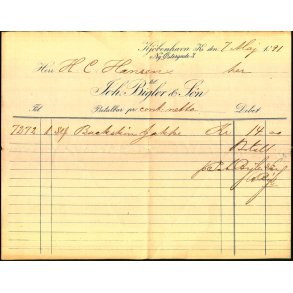 Kjøbenhavn K. den 7 Maj 1891
Ny Østergade 3
Herr H. C. Hansen her
til
Joh. Bigler & Søn
Betalbar pr cont. netto Debet
7272 1 Stk Buckskin Jakke Kr 14 00
Betalt
Joh. Bigler & Søn